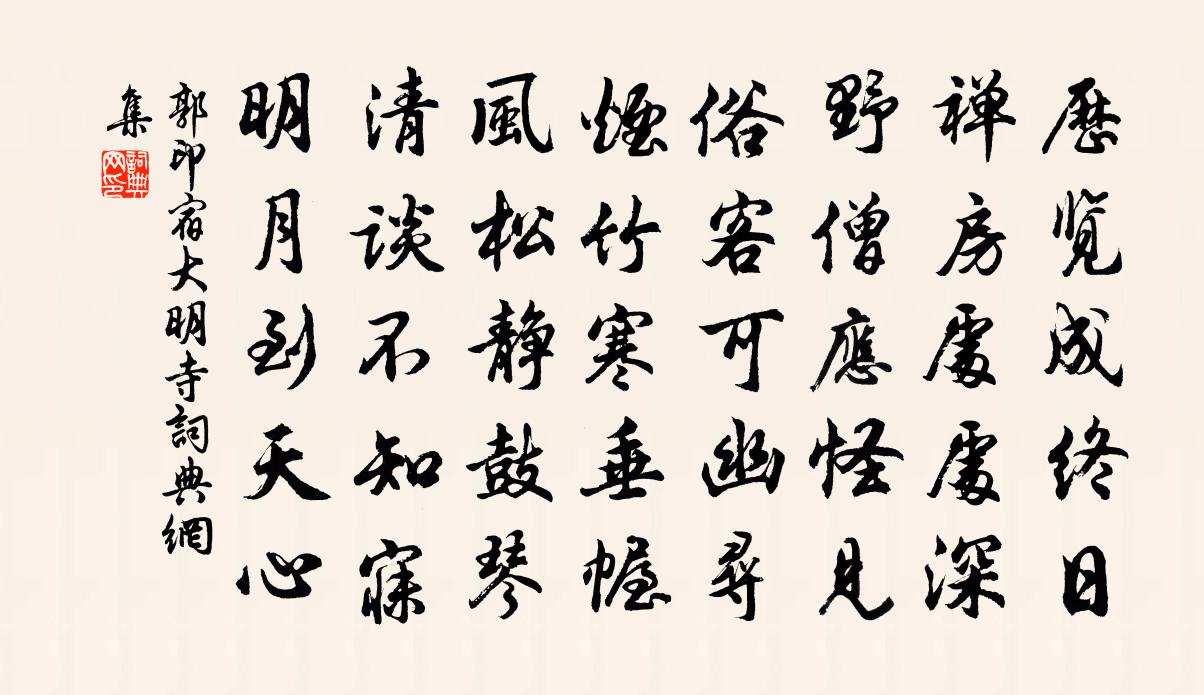 歷览成终日
禅房處處深
野僧應怪見
俗客可幽尋
煙竹寒垂幄
風松静鼓琴
清谈不知寐
明月到天心
郭印宿大明寺詞典網
集
詞典
网印